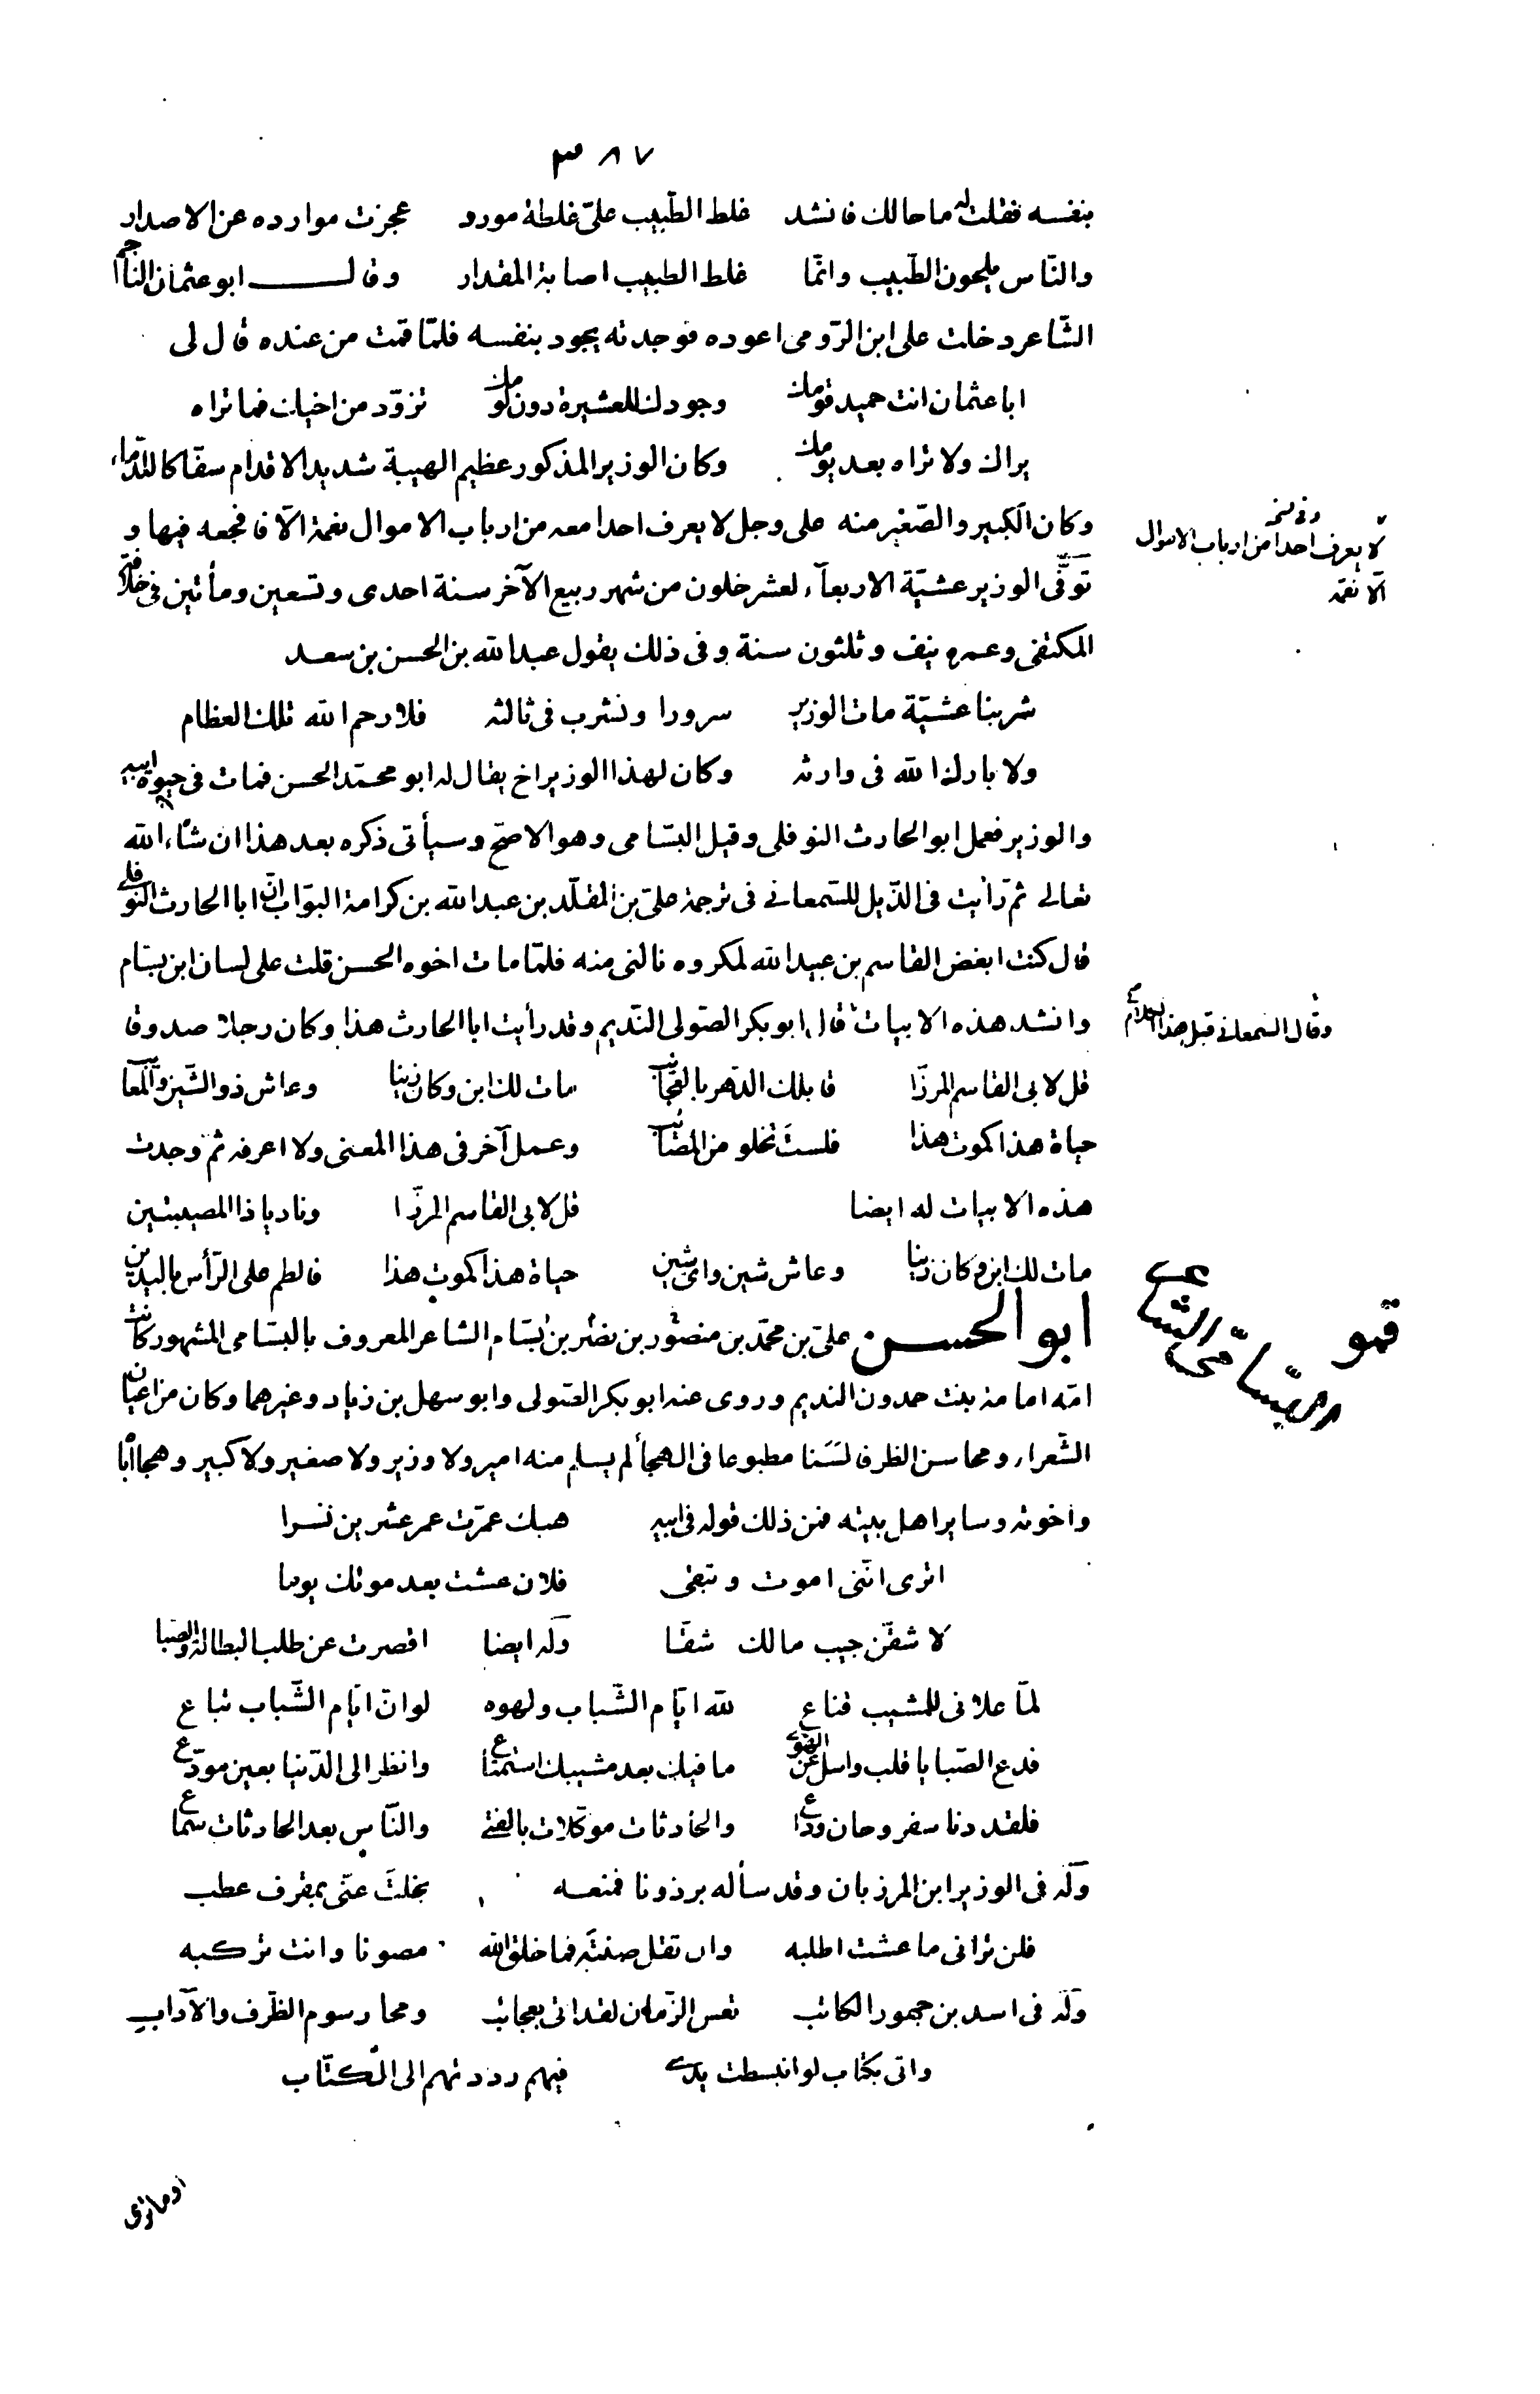 ٣٨٧
بنفسه فقلت له ما حالك فانشد غلط الطّبيب علىّ غلطة مورد عجزت موارده عن الاصدار
والنّاس يلحون الطّبيب وانّما غلط الطبيب اصابة المقدار وقال ابو عثمان الناجم
الشّاعر دخلت على ابن الرّومى اعوده فوجدته يجود بنفسه فلمّا قمت من عنده قال لى
ابا عثمان انت حميد قومك وجودك للعشيرة دون لومك تزوّد من اخيك فما تراه
يراك ولا تراه بعد يومك وكان الوزير المذكور عظيم الهيبة شديد الاقدام سفّاكا للدّماء
وكان الكبير والصّغير منه على وجل لا يعرف احدا معه من ارباب الاموال نعمة الّا فا فجعه فيها و
توفّى الوزير عشيّة الاربعآء لعشر خلون من شهر ربيع الآخر سنة احدى وتسعين ومأتين فى خلافة
المكتفى وعمره نيف وثلثون سنة وفى ذلك يقول عبد الله بن الحسن بن سعد
شربنا عشيّة مات الوزير سرورا ونشرب فى ثالثه فلا رحم الله تلك العظام
ولا بارك الله فى وارثه وكان لهذا الوزير اخ يقال له ابو محمّد الحسن فمات فى حيوة ابيه
والوزير فعمل ابو الحارث النوفلى وقيل البسّامى وهو الاصحّ وسيأتى ذكره بعد هذا ان شآء الله
تعالى ثمّ رأيت فى الذّيل للسّمعانى فى ترجمة علىّ بن المقلّد بن عبد الله بن كرامة البوّاب انّ ابا الحارث النوفلى
قال كنت ابغض القاسم بن عبيد الله لمكروه نالنى منه فلمّا مات اخوه الحسن قلت على لسان ابن بسّام
وانشد هذه الابيات قال ابو بكر الصّولى النّديم وقد رأيت ابا الحارث هذا وكان رجلا صدوقا
قل لابى القاسم المرزّا قابلك الدّهر بالعجائب مات لك ابن وكان زينا وعاش ذو الشّين والمعائب
حياة هذا كموت هذا فلستَ تخلو من المصائب وعمل آخر فى هذا المعنى ولا اعرفه ثم وجدت
هذه الابيات له ايضا قل لابى القاسم المرزّا وناد يا ذا المصيبتين
مات لك ابن وكان زينا وعاش شين واىّ شين حياة هذا كموت هذا فالطم على الرّأس باليدين
ابو الحسن علىّ بن محمّد بن منصور بن نصر بن بسّام الشاعر المعروف بالبسّامى المشهور كانت
امّه امامة بنت حمدون النديم وروى عنه ابو بكر الصّولى وابو سهل بن زياد وغيرهما وكان من اعيان
الشّعراء ومحاسن الظرفا لسَنا مطبوعا فى الهجأ لم يسلم منه امير ولا وزير ولا صغير ولا كبير وهجا اباه
واخوته وساير اهل بيته فمن ذلك قوله فى ابيه هبك عمّرت عمر عشرين نسرا
اترى انّنى اموت وتبقى فلان عشت بعد موتك يوما
لاشقّن جيب مالك شقّا وله ايضا اقصرت عن طلب البطالة والصّبا
لمّا علانى للمشيب قناع لله ايّام الشّباب ولهوه لو انّ ايّام الشّباب تباع
فدع الصّبا يا قلب واسل عن الهوى ما فيك بعد مشيبك استمتاع وانظر الى الدّنيا بعين مودّع
فلقد دنا سفر وحان وداع والحادثات موكّلات بالفتى والنّاس بعد الحادثات سماع
وله فى الوزير ابن المرزبان وقد سأله برذونا فمنعه بخلتَ عنّى بمقرف عطب
فلن ترانى ما عشت اطلبه وان تقل صنته فما خلق الله مصونا وانت تركبه
وله فى اسد بن جهور الكاتب تعس الزّمان لقد اتى بعجائب ومحا رسوم الظّرف والآداب
واتى بكتّاب لو انبسطت يدى فيهم رددتهم الى الكتّاب
وفى نسخه
لا يعرف احدا من ارباب الاموال
الّا نعمة
وقال السّمعانى قبل هذا الكلام
البسّامى الشاعر